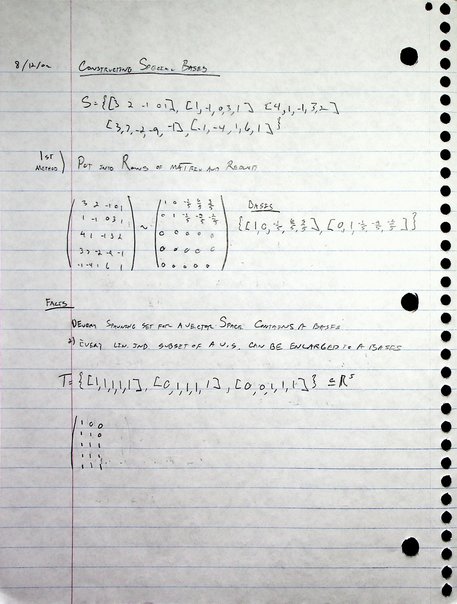 8/12/02 CONSTRUCTING SPECIAL BASES
S={[3 2 -1 0 1], [1,-1,0,3,1] [4,1,-1,3,2]
[3,7,-2,-9,-1],[-1,-4,1,6,1]}
1st METHOD) PUT INTO ROWS OF MATRIX AND REDUCE
3 2 -1 0 1
1 -1 0 3 1
4 1 -1 3 2
3 7 -2 -9 -1
-1 -4 1 6 1
~
0 0 0 0 0
0 0 0 0 0
0 0 0 0 0
BASES
FACTS
1) EVERY SPANNING SET FOR A VECTOR SPACE CONTAINS A BASES
2) EVERY LIN. IND SUBSET OF A V.S. CAN BE ENLARGED TO A BASES
T={[1,1,1,1,1], [0,1,1,1,1], [0,0,1,1,1]} ⊆ R^5
1 0 0
1 1 0
1 1 1
1 1 1
1 1 1